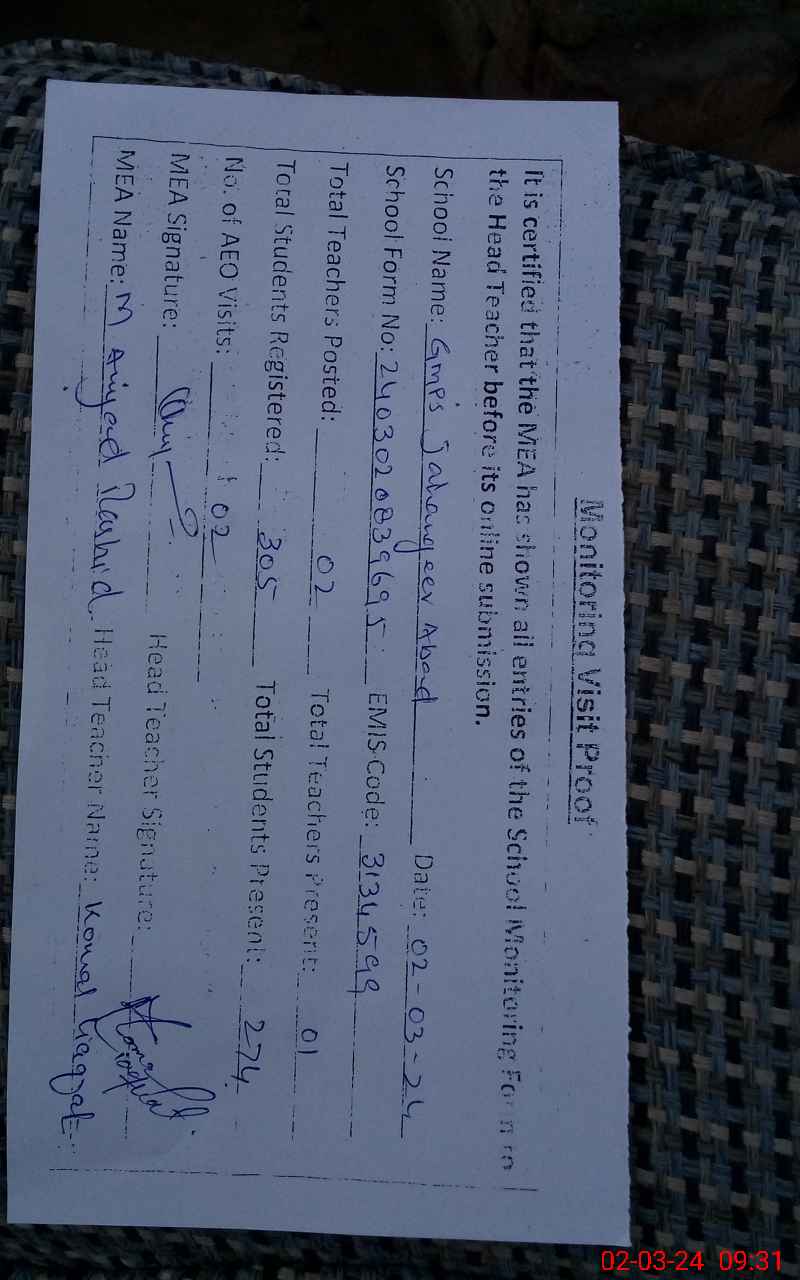 Monitoring Visit Proof
It is certified that the MEA has shown all entries of the School Monitoring Form to
the Head Teacher before its online submission.
School Name: GMPS Jahangeer Abad Date: 02-03-24
School Form No: 2403020839695 EMIS Code: 3134599
Total Teachers Posted: 02 Total Teachers Present: 01
Total Students Registered: 305 Total Students Present: 274
No. of AEO Visits: 02
MEA Signature: Head Teacher Signature:
MEA Name: M Amjad Rashid Head Teacher Name: Komal Liaqat
02-03-24 09:31